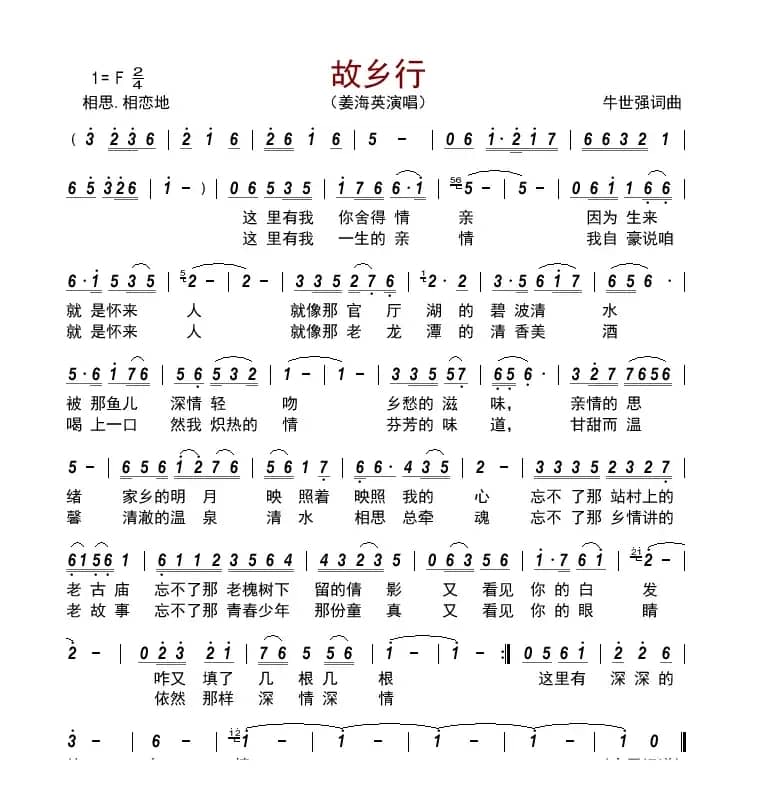 故乡行
1= F 2/4
相思.相恋地 （姜海英演唱） 牛世强词曲
( 3 2 3 6 | 2 1 6 | 2 6 1 6 | 5 - | 0 6 1· 2 1 7 | 6 6 3 2 1 |
6 5 3 2 6 | 1 - ) | 0 6 5 3 5 | 1 7 6 6·1 | 56 5 - | 5 - | 0 6 1 1 6 6 |
这 里有我 你舍得 情 亲 因为 生来
这 里有我 一生的 亲 情 我自 豪说咱
6·1 5 3 5 | 5 2 - | 2 - | 3 3 5 2 7 6 | 1 2· 2 | 3·5 6 1 7 | 6 5 6· |
就 是怀来 人 就像那 官 厅 湖 的 碧 波清 水
就 是怀来 人 就像那 老 龙 潭 的 清 香美 酒
5·6 1 7 6 | 5 6 5 3 2 | 1 - | 1 - | 3 3 5 5 7 | 6 5 6· | 3 2 7 7 6 5 6 |
被 那鱼儿 深情 轻 吻 乡愁的 滋 味， 亲情的 思
喝 上一口 然我 炽热的 情 芬芳的 味 道， 甘甜而 温
5 - | 6 5 6 1 2 7 6 | 5 6 1 7 | 6 6· 4 3 5 | 2 - | 3 3 3 5 2 3 2 7 |
绪 家乡的 明 月 映 照着 映照 我的 心 忘不 了那 站村上的
馨 清澈的 温 泉 清 水 相思 总牵 魂 忘不 了那 乡情讲的
6 1 5 6 1 | 6 1 1 2 3 5 6 4 | 4 3 2 3 5 | 0 6 3 5 6 | 1·7 6 1 | 21 2 - |
老 古 庙 忘不了那 老槐树下 留的倩 影 又 看见 你 的 白 发
老 故 事 忘不了那 青春少年 那份童 真 又 看见 你 的 眼 睛
2 - | 0 2 3 2 1 | 7 6 5 5 6 | 1 - | 1 - :‖ 0 5 6 1 | 2 2 6 |
咋又 填了 几 根几 根 这里有 深 深的
依然 那样 深 情深 情
3 - | 6 - | 12 1 - | 1 - | 1 - | 1 - | 1 0 ‖